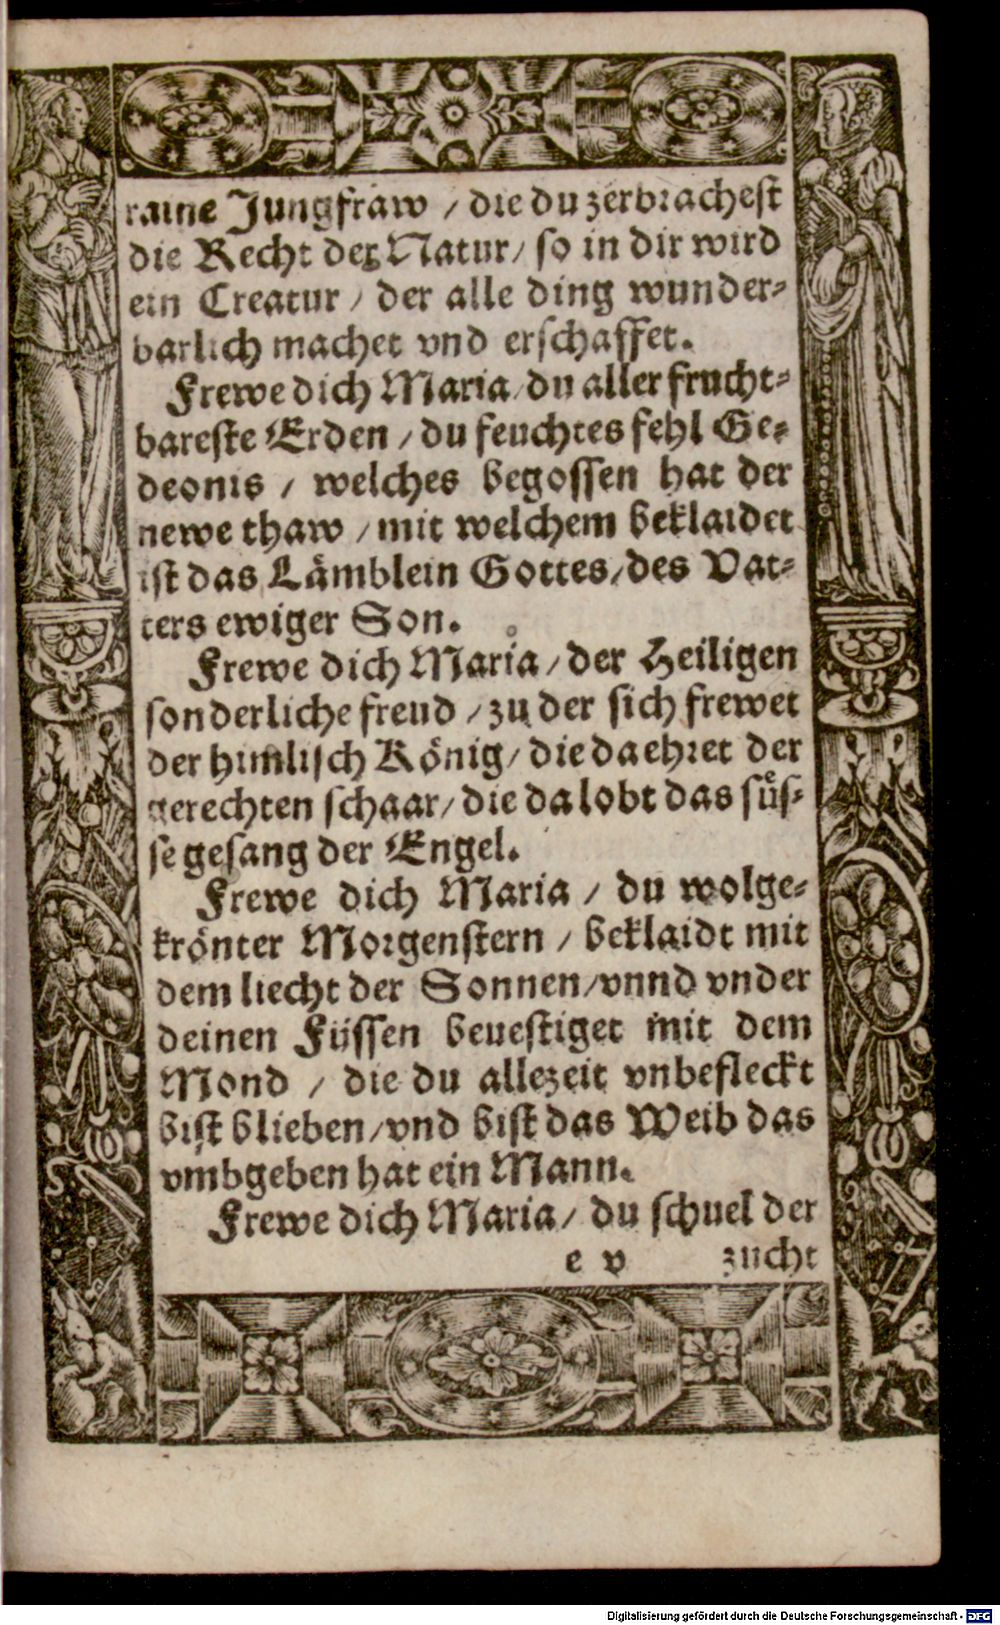 raine Jungfraw / die du zerbrachest
die Recht der Natur / so in dir wird
ein Creatur / der alle ding wunder-
barlich machet vnd erschaffet.
Frewe dich Maria / du aller frucht-
bareste Erden / du feuchtes fehl Ge-
deonis / welches begossen hat der
newe thaw / mit welchem beklaidet
ist das Lämblein Gottes / des Vat-
ters ewiger Son.
Frewe dich Maria / der Heiligen
sonderliche freud / zu der sich frewet
der himlisch König / die da ehret der
gerechten schaar / die da lobt das süs-
se gesang der Engel.
Frewe dich Maria / du wolge-
krönter Morgenstern / beklaidt mit
dem liecht der Sonnen / vnnd vnder
deinen Füssen beuestiget mit dem
Mond / die du allezeit vnbefleckt
bist blieben / vnd bist das Weib das
vmbgeben hat ein Mann.
Frewe dich Maria / du schuel der
e v zucht
Digitalisierung gefördert durch die Deutsche Forschungsgemeinschaft - DFG